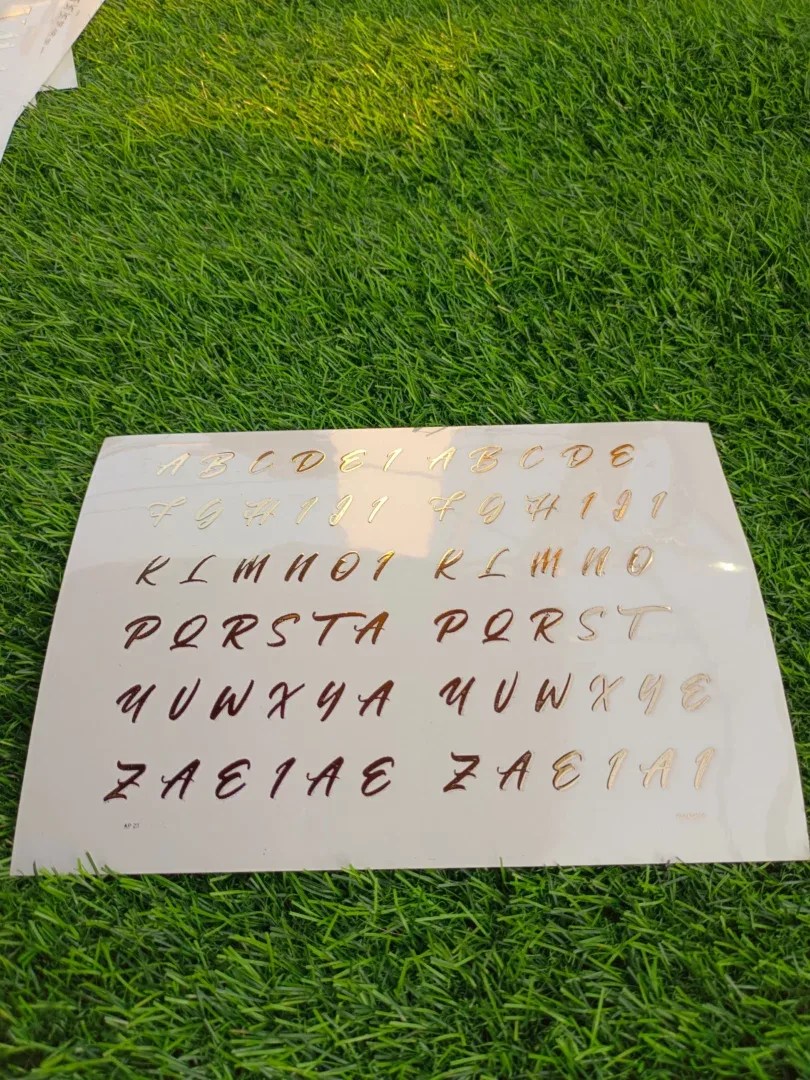 A B C D E I A B C D E
F G H I J I F G H I J I
K L M N O I K L M N O
P Q R S T A P Q R S T
U V W X Y A U V W X Y E
Z A E I A E Z A E I A I